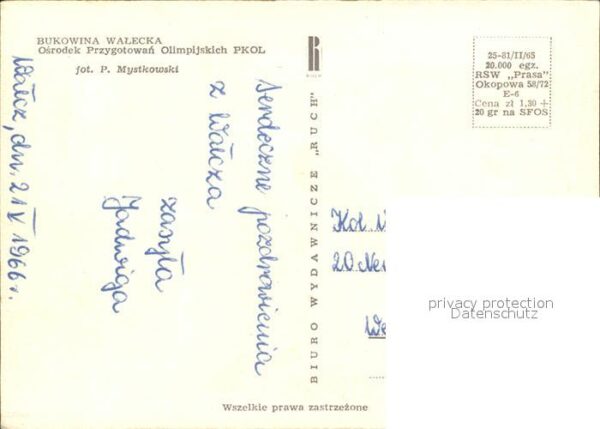 BUKOWINA WAŁECKA
Ośrodek Przygotowań Olimpijskich PKOL
fot. P. Mystkowski
Wałcz, dn. 21 V 1966 r.
Serdeczne pozdrowienia
z Wałcza
zasyła
Jadwiga
BIURO WYDAWNICZE „RUCH"
25-81/II/65
20.000 egz.
RSW „Prasa"
Okopowa 58/72
E-6
Cena zł 1,30 +
20 gr na SFOS
Kol.
20
privacy protection
Datenschutz
Wszelkie prawa zastrzeżone